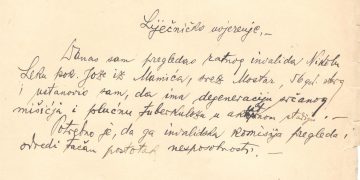 Liječničko uvjerenje.-
Danas sam pregledao ratnog invalida Nikolu
Leku pok. Jože iz Mamića, srez Mostar, 56 god. starog
i ustanovio sam, da ima degeneraciju srčanog
mišićja i plućnu tuberkulozu u aktivnom stadiju.-
Potrebno je, da ga invalidska komisija pregleda i
odredi tačan postotak nesposobnosti.-